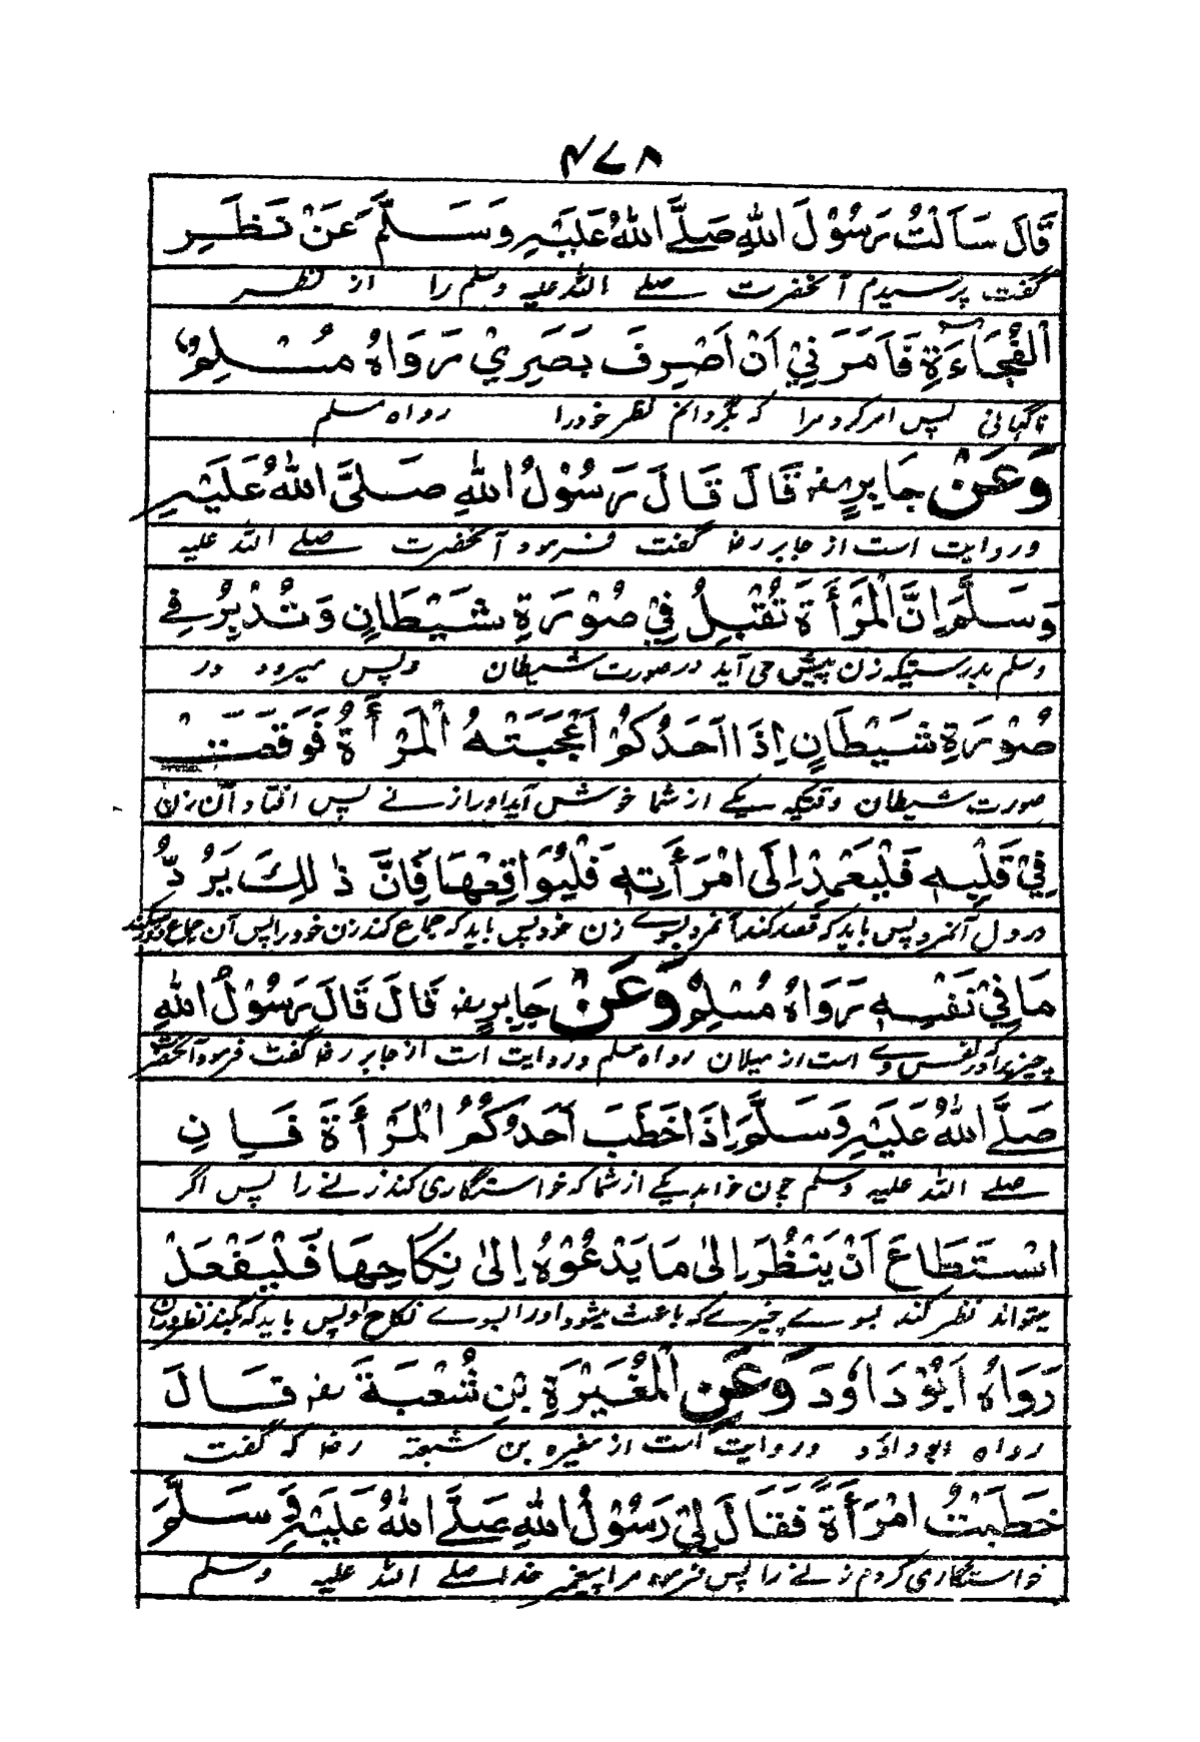 ۴۷۸
قَالَ سَاَلْتُ رَسُوْلَ اللهِ صَلَّے اللهُ عَلَيْهِ وَسَلَّمَ عَنْ نَظَرِ
گفت پرسیدم آنحضرت صلے اللہ علیہ وسلم را از نظر
الْفُجَاءَةِ فَاَمَرَنِيْ اَنْ اَصْرِفَ بَصَرِيْ رَوَاهُ مُسْلِمٌ
ناگہانی پس امر کرد مرا کہ بگردانم نظر خود را رواہ مسلم
وَعَنْ جَابِرٍ رض قَالَ قَالَ رَسُوْلُ اللهِ صَلَّى اللهُ عَلَيْهِ
و روایت است از جابر رض گفت فرمود آنحضرت صلے اللہ علیہ
وَسَلَّمَ اِنَّ الْمَرْأَةَ تُقْبِلُ فِيْ صُوْرَةِ شَيْطَانٍ وَتُدْبِرُ فِے
وسلم بدرستیکہ زن پیش می آید در صورت شیطان و پس میرود در
صُوْرَةِ شَيْطَانٍ اِذَا اَحَدُكُمْ اَعْجَبَتْهُ الْمَرْأَةُ فَوَقَعَتْ
صورت شیطان وقتیکہ یکے از شما خوش آید او را زنے پس افتاد آن زن
فِيْ قَلْبِهِ فَلْيَعْمِدْ اِلَى امْرَأَتِهِ فَلْيُوَاقِعْهَا فَاِنَّ ذٰلِكَ يَرُدُّ
در دل آنمرد پس باید کہ قصد کند آنمرد بسوے زن خود پس باید کہ جماع کند زن خود را پس آن جماع
مَا فِيْ نَفْسِهِ رَوَاهُ مُسْلِمٌ وَعَنْ جَابِرٍ رض قَالَ قَالَ رَسُوْلُ اللهِ
چیزیرا کہ در نفس وے است از میلان رواہ مسلم و روایت است از جابر رض گفت فرمود آنحضرت
صَلَّے اللهُ عَلَيْهِ وَسَلَّمَ اِذَا خَطَبَ اَحَدُكُمُ الْمَرْأَةَ فَاِنِ
صلے اللہ علیہ وسلم چون خواہد یکے از شما کہ خواستگاری کند زنے را پس اگر
اسْتَطَاعَ اَنْ يَنْظُرَ اِلٰى مَا يَدْعُوْهُ اِلٰى نِكَاحِهَا فَلْيَفْعَلْ
میتواند نظر کند بسوے چیزے کہ باعث میشود او را بسوے نکاح او پس باید کہ بکند نظر و را
رَوَاهُ اَبُوْ دَاوٗدَ وَعَنِ الْمُغِيْرَةِ بْنِ شُعْبَةَ رض قَالَ
رواہ ابو داؤد و روایت است از مغیرہ بن شعبۃ رض کہ گفت
خَطَبْتُ امْرَأَةً فَقَالَ لِيْ رَسُوْلُ اللهِ صَلَّے اللهُ عَلَيْهِ وَسَلَّمَ
خواستگاری کردم زنے را پس فرمود مرا پیغمبر خدا صلے اللہ علیہ وسلم